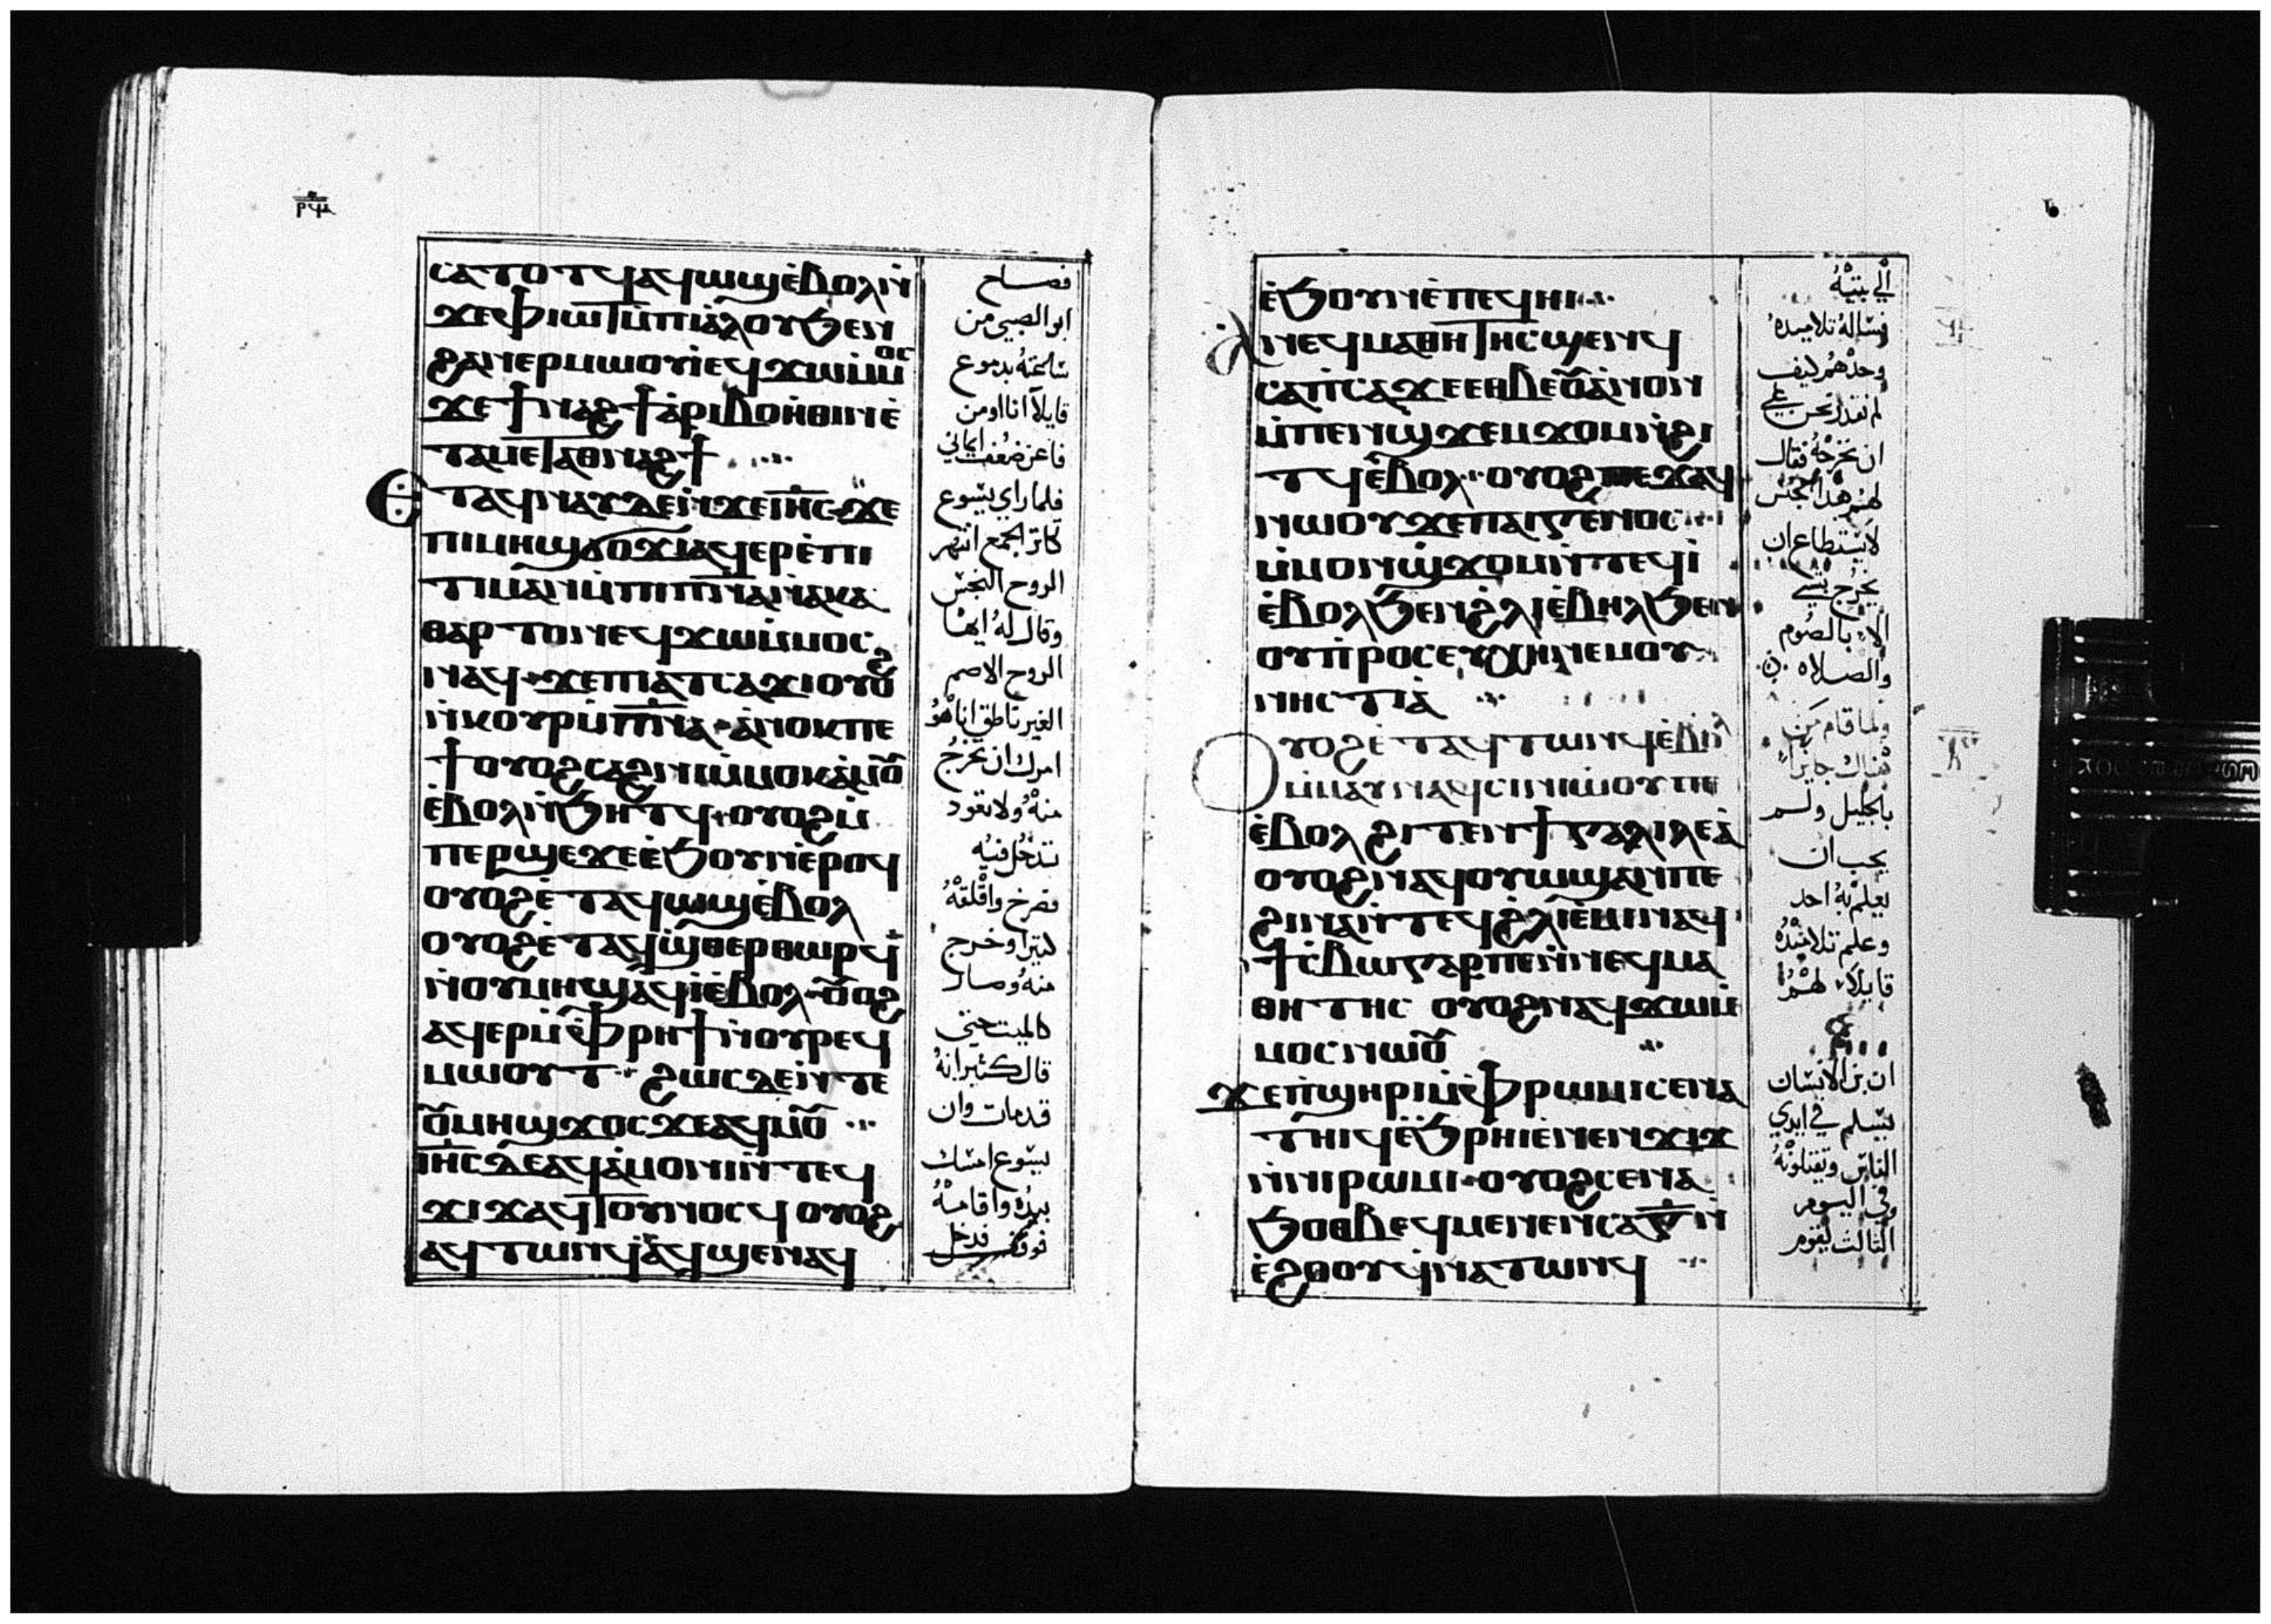 ⲥⲁⲧⲟⲧϥⲁϥⲱϣⲉ̀ⲃⲟⲗⲛ̀
ϫⲉⲫⲓⲱⲧⲙ̀ⲡⲓⲁ̀ⲗⲟⲩϧⲉⲛ
ϩⲁⲛⲉⲣⲙⲱⲟⲩⲓ̀ⲉϥϫⲱⲙ̀ⲙⲟⲥ
ϫⲉϯⲛⲁϩϯⲁ̀ⲣⲓⲃⲟⲏ̀ⲑⲓⲛⲉ̀
ⲧⲁⲙⲉⲧⲁⲑⲛⲁϩϯ
Ⲉⲧⲁϥⲛⲁⲩⲇⲉⲛ̀ϫⲉⲓⲏ̅ⲥ̅ϫⲉ
ⲡⲓⲙⲏϣϭⲟϫⲓⲁϥⲉⲣⲉ̀ⲡⲓ
ⲧⲓⲙⲁⲛⲙ̀ⲡⲓⲡ̅ⲛ̅ⲁ̅ⲛ̀ⲁⲕⲁ
ⲑⲁⲣⲧⲟⲛⲉϥϫⲱⲙ̀ⲙⲟⲥ
ⲛⲁϥϫⲉⲡⲓⲁⲧⲥⲁϫⲓⲟⲩⲟϩ
ⲛ̀ⲕⲟⲩⲣⲙ̀ⲡ̅ⲛ̅ⲁ̅ⲁ̀ⲛⲟⲕⲡⲉ
ϯⲟⲩⲟϩⲥⲁϩⲛⲓⲙ̀ⲙⲟⲕⲁ̀ⲙⲟⲩ
ⲉ̀ⲃⲟⲗⲛ̀ϧⲏⲧϥⲟⲩⲟϩⲙ̀
ⲡⲉⲣϣⲉϫⲉⲉ̀ϧⲟⲩⲛⲉ̀ⲣⲟϥ
ⲟⲩⲟϩⲉ̀ⲧⲁϥⲱϣⲉ̀ⲃⲟⲗ
ⲟⲩⲟϩⲉ̀ⲧⲁϥϣ̀ⲑⲉⲣⲑⲱⲣϥ
ⲛ̀ⲟⲩⲙⲏϣⲁϥⲓ̀ⲉ̀ⲃⲟⲗⲟⲩⲟϩ
ⲁϥⲉⲣⲙ̀ⲫ̀ⲣⲏϯⲛ̀ⲟⲩⲣⲉϥ
ⲙⲱⲟⲩⲧ ϩⲱⲥⲇⲉⲛ̀ⲧⲉ
ⲟⲩⲙⲏϣϫⲟⲥϫⲉⲁϥⲙⲟⲩ
ⲓⲏ̅ⲥ̅ⲇⲉⲁϥⲁ̀ⲙⲟⲛⲓⲛ̀ⲧⲉϥ
ϫⲓϫⲁϥⲧⲟⲩⲛⲟⲥϥ ⲟⲩⲟϩ
ⲁϥⲧⲱⲛϥⲁϥϣⲉⲛⲁϥ
فصاح
ابو الصبي من
ساعته بدموع
قايلا انا اومن
فاعن ضعف ايماني
فلما راي يسوع
تكاثر الجمع انتهر
الروح النجس
وقال له ايها
الروح الاصم
الغير ناطق انا هو
امرك ان تخرج
منه ولا تعود
تدخل فيه
فصرخ واقلقه
كثيرا وخرج
منه وصار
كالميت حتي
قال كثير انه
قد مات وان
يسوع امسك
بيده واقامه
فوقف فدخل
ⲉ̀ϧⲟⲩⲛⲉ̀ⲡⲉϥⲏⲓ
ⲁⲛⲉϥⲙⲁⲑⲏⲧⲏⲥϣⲉⲛϥ
ⲥⲁⲡ̀ⲥⲁϫⲉⲉⲑⲃⲉⲟⲩⲁ̀ⲛⲟⲛ
ⲙ̀ⲡⲉⲛϣϫⲉⲙϫⲟⲙⲛ̀ϩⲓ
ⲧϥⲉ̀ⲃⲟⲗ ⲟⲩⲟϩⲡⲉϫⲁϥ
ⲛⲱⲟⲩϫⲉⲡⲁⲓⲅⲉⲛⲟⲥ
ⲙ̀ⲙⲟⲛϣ̀ϫⲟⲙⲛ̀ⲧⲉϥⲓ̀
ⲉ̀ⲃⲟⲗϧⲉⲛϩⲗⲓⲉ̀ⲃⲏⲗϧⲉⲛ
ⲟⲩⲡ̀ⲣⲟⲥⲉⲩⲭⲏⲛⲉⲙⲟⲩ
ⲛⲏⲥⲧⲓⲁ̀
Ⲟⲩⲟϩⲉ̀ⲧⲁϥⲧⲱⲛϥⲉ̀ⲃⲟⲗ
ⲙ̀ⲙⲁⲩⲛⲁϥⲥⲓⲛⲓⲱⲟⲩⲡⲉ
ⲉ̀ⲃⲟⲗϩⲓⲧⲉⲛϯⲅⲁⲗⲓⲗⲉⲁ̀
ⲟⲩⲟϩⲛⲁϥⲟⲩⲱϣⲁⲛⲡⲉ
ϩⲓⲛⲁⲛ̀ⲧⲉϥϩⲗⲓⲉ̀ⲙⲓⲛⲁϥ
ϯⲥ̀ⲃⲱⲅⲁⲣⲡⲉⲛ̀ⲛⲉϥⲙⲁ
ⲑⲏⲧⲏⲥ ⲟⲩⲟϩⲛⲁϥϫⲱⲙ̀
ⲙⲟⲥⲛⲱⲟⲩ
ϫⲉⲡ̀ϣⲏⲣⲓⲙ̀ⲫ̀ⲣⲱⲙⲓⲥⲉⲛⲁ
ⲧⲏⲓϥⲉ̀ϧ̀ⲣⲏⲓⲉ̀ⲛⲉⲛϫⲓϫ
ⲛ̀ⲛⲓⲣⲱⲙⲓⲟⲩⲟϩⲥⲉⲛⲁ
ϧⲟⲑⲃⲉϥⲙⲉⲛⲉⲛⲥⲁⲅ̅ⲛ̀
ⲉ̀ϩⲟⲟⲩϥⲛⲁⲧⲱⲛϥ
الي بيته
فساله تلاميذه
وحدهم كيف
لم نقدر نحن علي
ان نخرجه فقال
لهم هذا الجنس
لا يستطاع ان
يخرج بشي
الا بالصوم
والصلاه
ولما قام من
هناك جايزا
بالجليل ولم
يحب ان
يعلم به احد
وعلم تلاميذه
قايلا لهم
ان بن الانسان
يسلم في ايدي
الناس وتقتلونه
وفي اليوم
الثالث يقوم